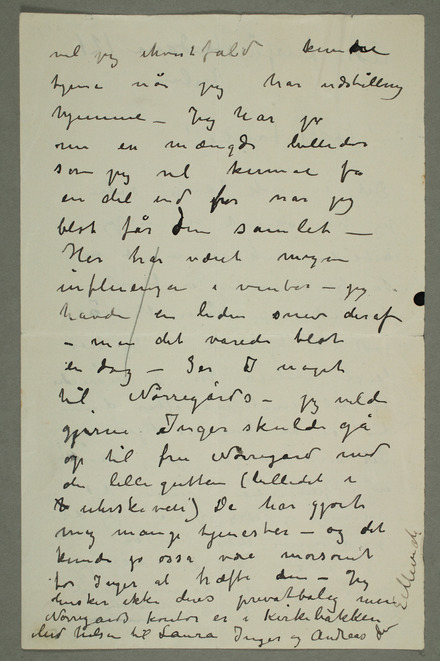 vel jeg ihvertfald kunde
tjene når jeg har udstilling
hjemme – Jeg har jo
nu en mængde billeder
som jeg vel kunne få
en del ud for når jeg
blot får dem samlet –
Her har været megen
influenza i vinter – jeg
havde en liden snev deraf
– men det varede blot
en dag – Ser I noget
til Nørregårds – jeg vilde
gjerne Inger skulde gå
op til fru Nørregård med
den lille gutten (billedet i
) De har gjort
mig mange tjenester – og det
kunde jo osså være morsomt
for Inger at træffe dem – Jeg
husker ikke deres privatbolig men
Nørregårds kontor er i Kirkebakken
Med hilsen til Laura Inger og Andreas
E Munch